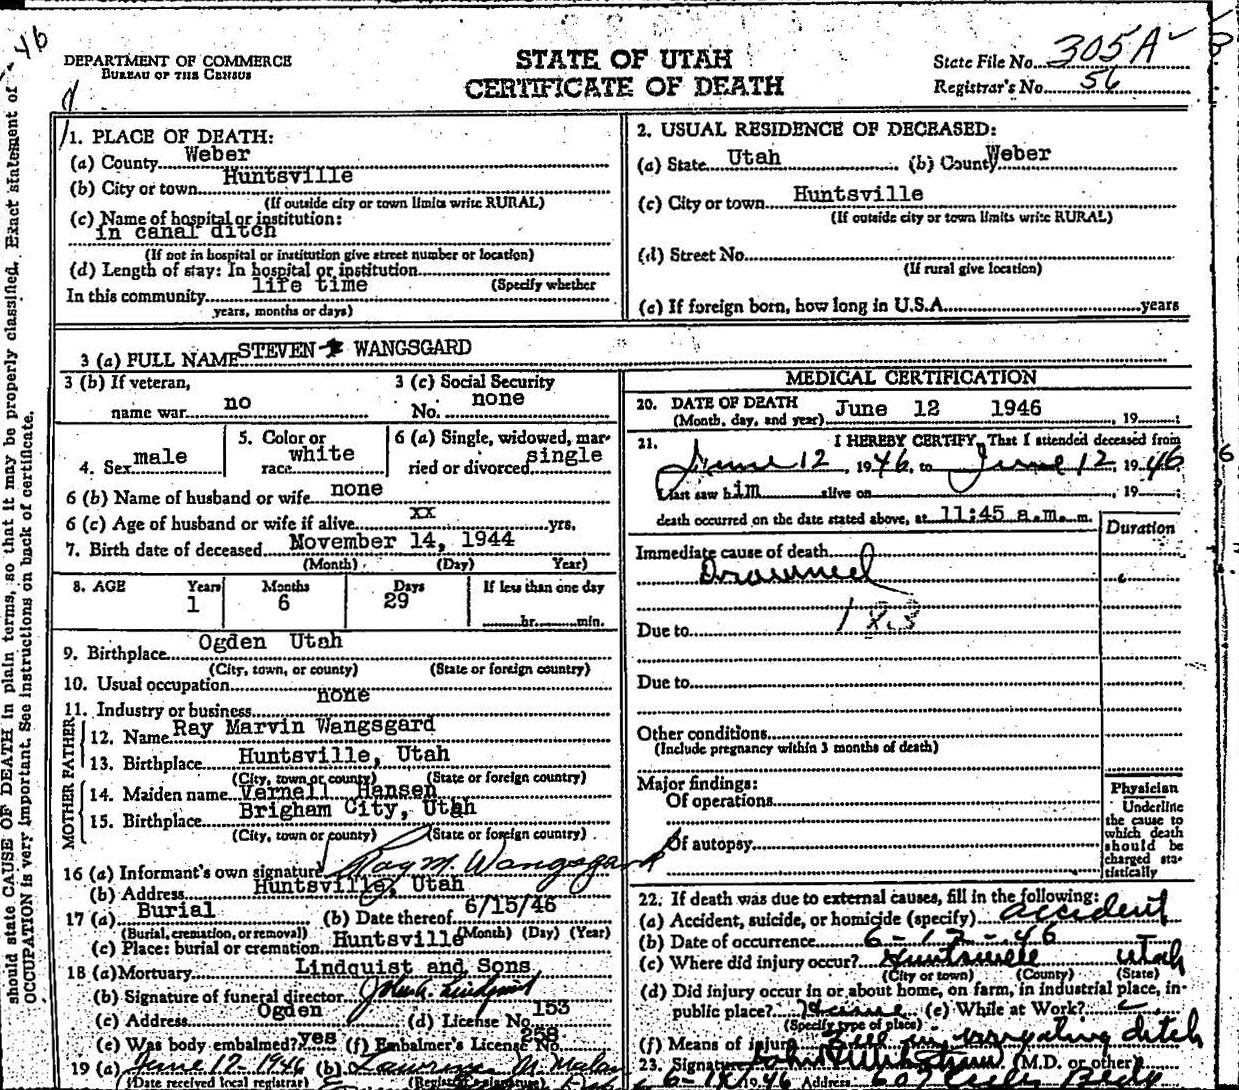 DEPARTMENT OF COMMERCE
BUREAU OF THE CENSUS
STATE OF UTAH
CERTIFICATE OF DEATH
State File No. 305A
Registrar's No. 56
should state CAUSE OF DEATH in plain terms, so that it may be properly classified. Exact statement of
OCCUPATION is very important. See instructions on back of certificate.
1. PLACE OF DEATH:
(a) County Weber
(b) City or town Huntsville
(If outside city or town limits write RURAL)
(c) Name of hospital or institution:
in canal ditch
(If not in hospital or institution give street number or location)
(d) Length of stay: In hospital or institution
(Specify whether
In this community life time
years, months or days)
2. USUAL RESIDENCE OF DECEASED:
(a) State Utah (b) County Weber
(c) City or town Huntsville
(If outside city or town limits write RURAL)
(d) Street No.
(If rural give location)
(e) If foreign born, how long in U.S.A. years
3 (a) FULL NAME STEVEN WANGSGARD
3 (b) If veteran, name war no
3 (c) Social Security No. none
4. Sex male
5. Color or race white
6 (a) Single, widowed, married or divorced single
6 (b) Name of husband or wife none
6 (c) Age of husband or wife if alive xx yrs.
7. Birth date of deceased November 14, 1944
(Month) (Day) Year)
8. AGE Years Months Days If less than one day
1 6 29 hr. min.
9. Birthplace Ogden Utah
(City, town, or county) (State or foreign country)
10. Usual occupation
none
11. Industry or business
FATHER
12. Name Ray Marvin Wangsgard
13. Birthplace Huntsville, Utah
(City, town or county) (State or foreign country)
MOTHER
14. Maiden name Vernell Hansen
15. Birthplace Brigham City, Utah
(City, town or county) (State or foreign country)
16 (a) Informant's own signature Ray M. Wangsgard
(b) Address Huntsville, Utah
17 (a) Burial (b) Date thereof 6/15/46
(Burial, cremation, or removal) (Month) (Day) (Year)
(c) Place: burial or cremation Huntsville
18 (a) Mortuary Lindquist and Sons
(b) Signature of funeral director John A. Lindquist
(c) Address Ogden (d) License No. 153
(e) Was body embalmed? yes (f) Embalmer's License No. 258
19 (a) June 12 1946 (b) Lawrence M. Malan
(Date received local registrar) (Registrar's signature)
MEDICAL CERTIFICATION
20. DATE OF DEATH June 12 1946
(Month, day, and year) , 19 ;
21. I HEREBY CERTIFY, That I attended deceased from
June 12, 1946, to June 12, 1946
I last saw him alive on , 19 ;
death occurred on the date stated above, at 11:45 a.m. m.
Duration
Immediate cause of death
Drowned
183
Due to
Due to
Other conditions
(Include pregnancy within 3 months of death)
Major findings:
Of operations
Of autopsy
Physician
Underline
the cause to
which death
should be
charged sta-
tistically
22. If death was due to external causes, fill in the following:
(a) Accident, suicide, or homicide (specify) accident
(b) Date of occurrence 6-12-46
(c) Where did injury occur? Huntsville Utah
(City or town) (County) (State)
(d) Did injury occur in or about home, on farm, in industrial place, in
public place? Home (e) While at Work?
(Specify type of place)
(f) Means of injury Fell in irrigating ditch
23. Signature (M.D. or other)
Address